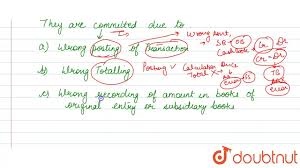 They are committed due to
Wrong Amt.
a) Wrong posting of transaction
SB → OB
Cash Sale
Cr. Dr.
Cr = Dr
b) Wrong Totalling
Posting ✓
Calculation
Total X
TB
error
c) Wrong recording of amount in books of
original entry or subsidiary books
doubtnut